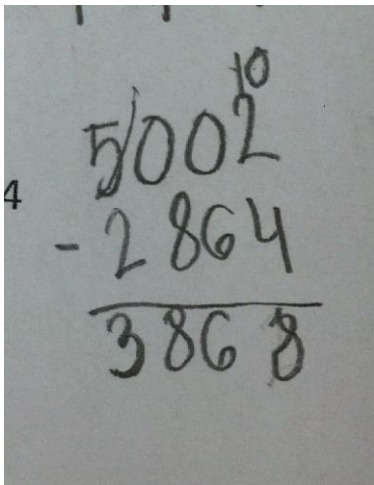 10
5002
4
- 2864
3868